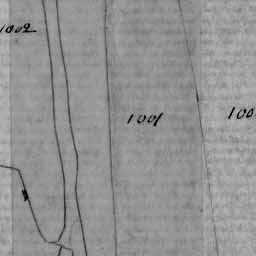 1002
1001
100